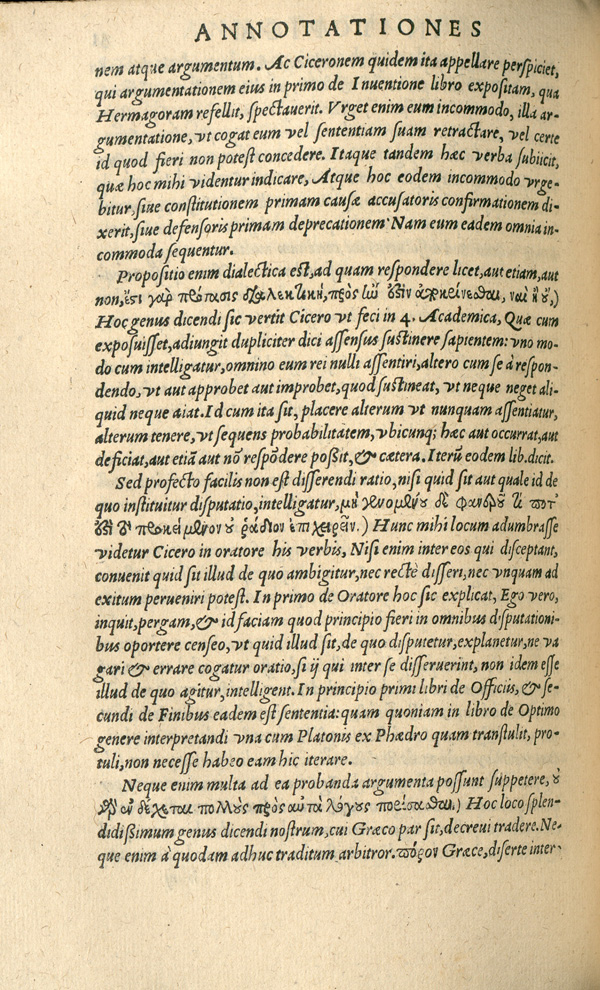 ANNOTATIONES
nem atque argumentum. Ac Ciceronem quidem ita appellare perspiciet,
qui argumentationem eius in primo de Inuentione libro expositam, qua
Hermagoram refellit, spectauerit. Vrget enim eum incommodo, illa ar-
gumentatione, vt cogat eum vel sententiam suam retractare, vel certe
id quod fieri non potest concedere. Itaque tandem hæc verba subiicit,
quæ hoc mihi videntur indicare, Atque hoc eodem incommodo vrge-
bitur, siue constitutionem primam causæ accusatoris confirmationem di-
xerit, siue defensoris primam deprecationem. Nam eum eadem omnia in-
commoda sequentur.
Propositio enim dialectica est, ad quam respondere licet, aut etiam, aut
non, ἔστι γὰρ πρότασις διαλεκτικὴ, πρὸς ἣν ἔστιν ἀποκρίνεσθαι, ναὶ ἢ οὔ,)
Hoc genus dicendi sic vertit Cicero vt feci in 4. Academica, Quæ cum
exposuisset, adiungit dupliciter dici assensus sustinere sapientem: vno mo-
do cum intelligatur, omnino eum rei nulli assentiri, altero cum se à respon-
dendo, vt aut approbet aut improbet, quod sustineat, vt neque neget ali-
quid neque aiat. Id cum ita sit, placere alterum vt nunquam assentiatur,
alterum tenere, vt sequens probabilitatem, vbicunq; hæc aut occurrat, aut
deficiat, aut etiā aut nō respōdere poßit, & cætera. Iterū eodem lib. dicit.
Sed profecto facilis non est disserendi ratio, nisi quid sit aut quale id de
quo instituitur disputatio, intelligatur, μὴ γενομένου δὲ φανεροῦ τί ποτ'
ἐστὶ τὸ προκείμενον οὐ ῥᾴδιον ἐπιχειρεῖν.) Hunc mihi locum adumbrasse
videtur Cicero in oratore his verbis, Nisi enim inter eos qui disceptant,
conuenit quid sit illud de quo ambigitur, nec rectè disseri, nec vnquam ad
exitum perueniri potest. In primo de Oratore hoc sic explicat, Ego vero,
inquit, pergam, & id faciam quod principio fieri in omnibus disputationi-
bus oportere censeo, vt quid illud sit, de quo disputetur, explanetur, ne va
gari & errare cogatur oratio, si ij qui inter se disseruerint, non idem esse
illud de quo agitur, intelligent. In principio primi libri de Officiis, & se-
cundi de Finibus eadem est sententia: quam quoniam in libro de Optimo
genere interpretandi vna cum Platonis ex Phædro quam transtulit, pro-
tuli, non necesse habeo eam hic iterare.
Neque enim multa ad ea probanda argumenta possunt suppetere, οὐ
γὰρ ἐνδέχεται πολλοὺς πρὸς αὐτὰ λόγους ποιεῖσθαι.) Hoc loco splen-
didißimum genus dicendi nostrum, cui Græco par sit, decreui tradere. Ne-
que enim à quodam adhuc traditum arbitror. πόρον Græce, diserte inter-